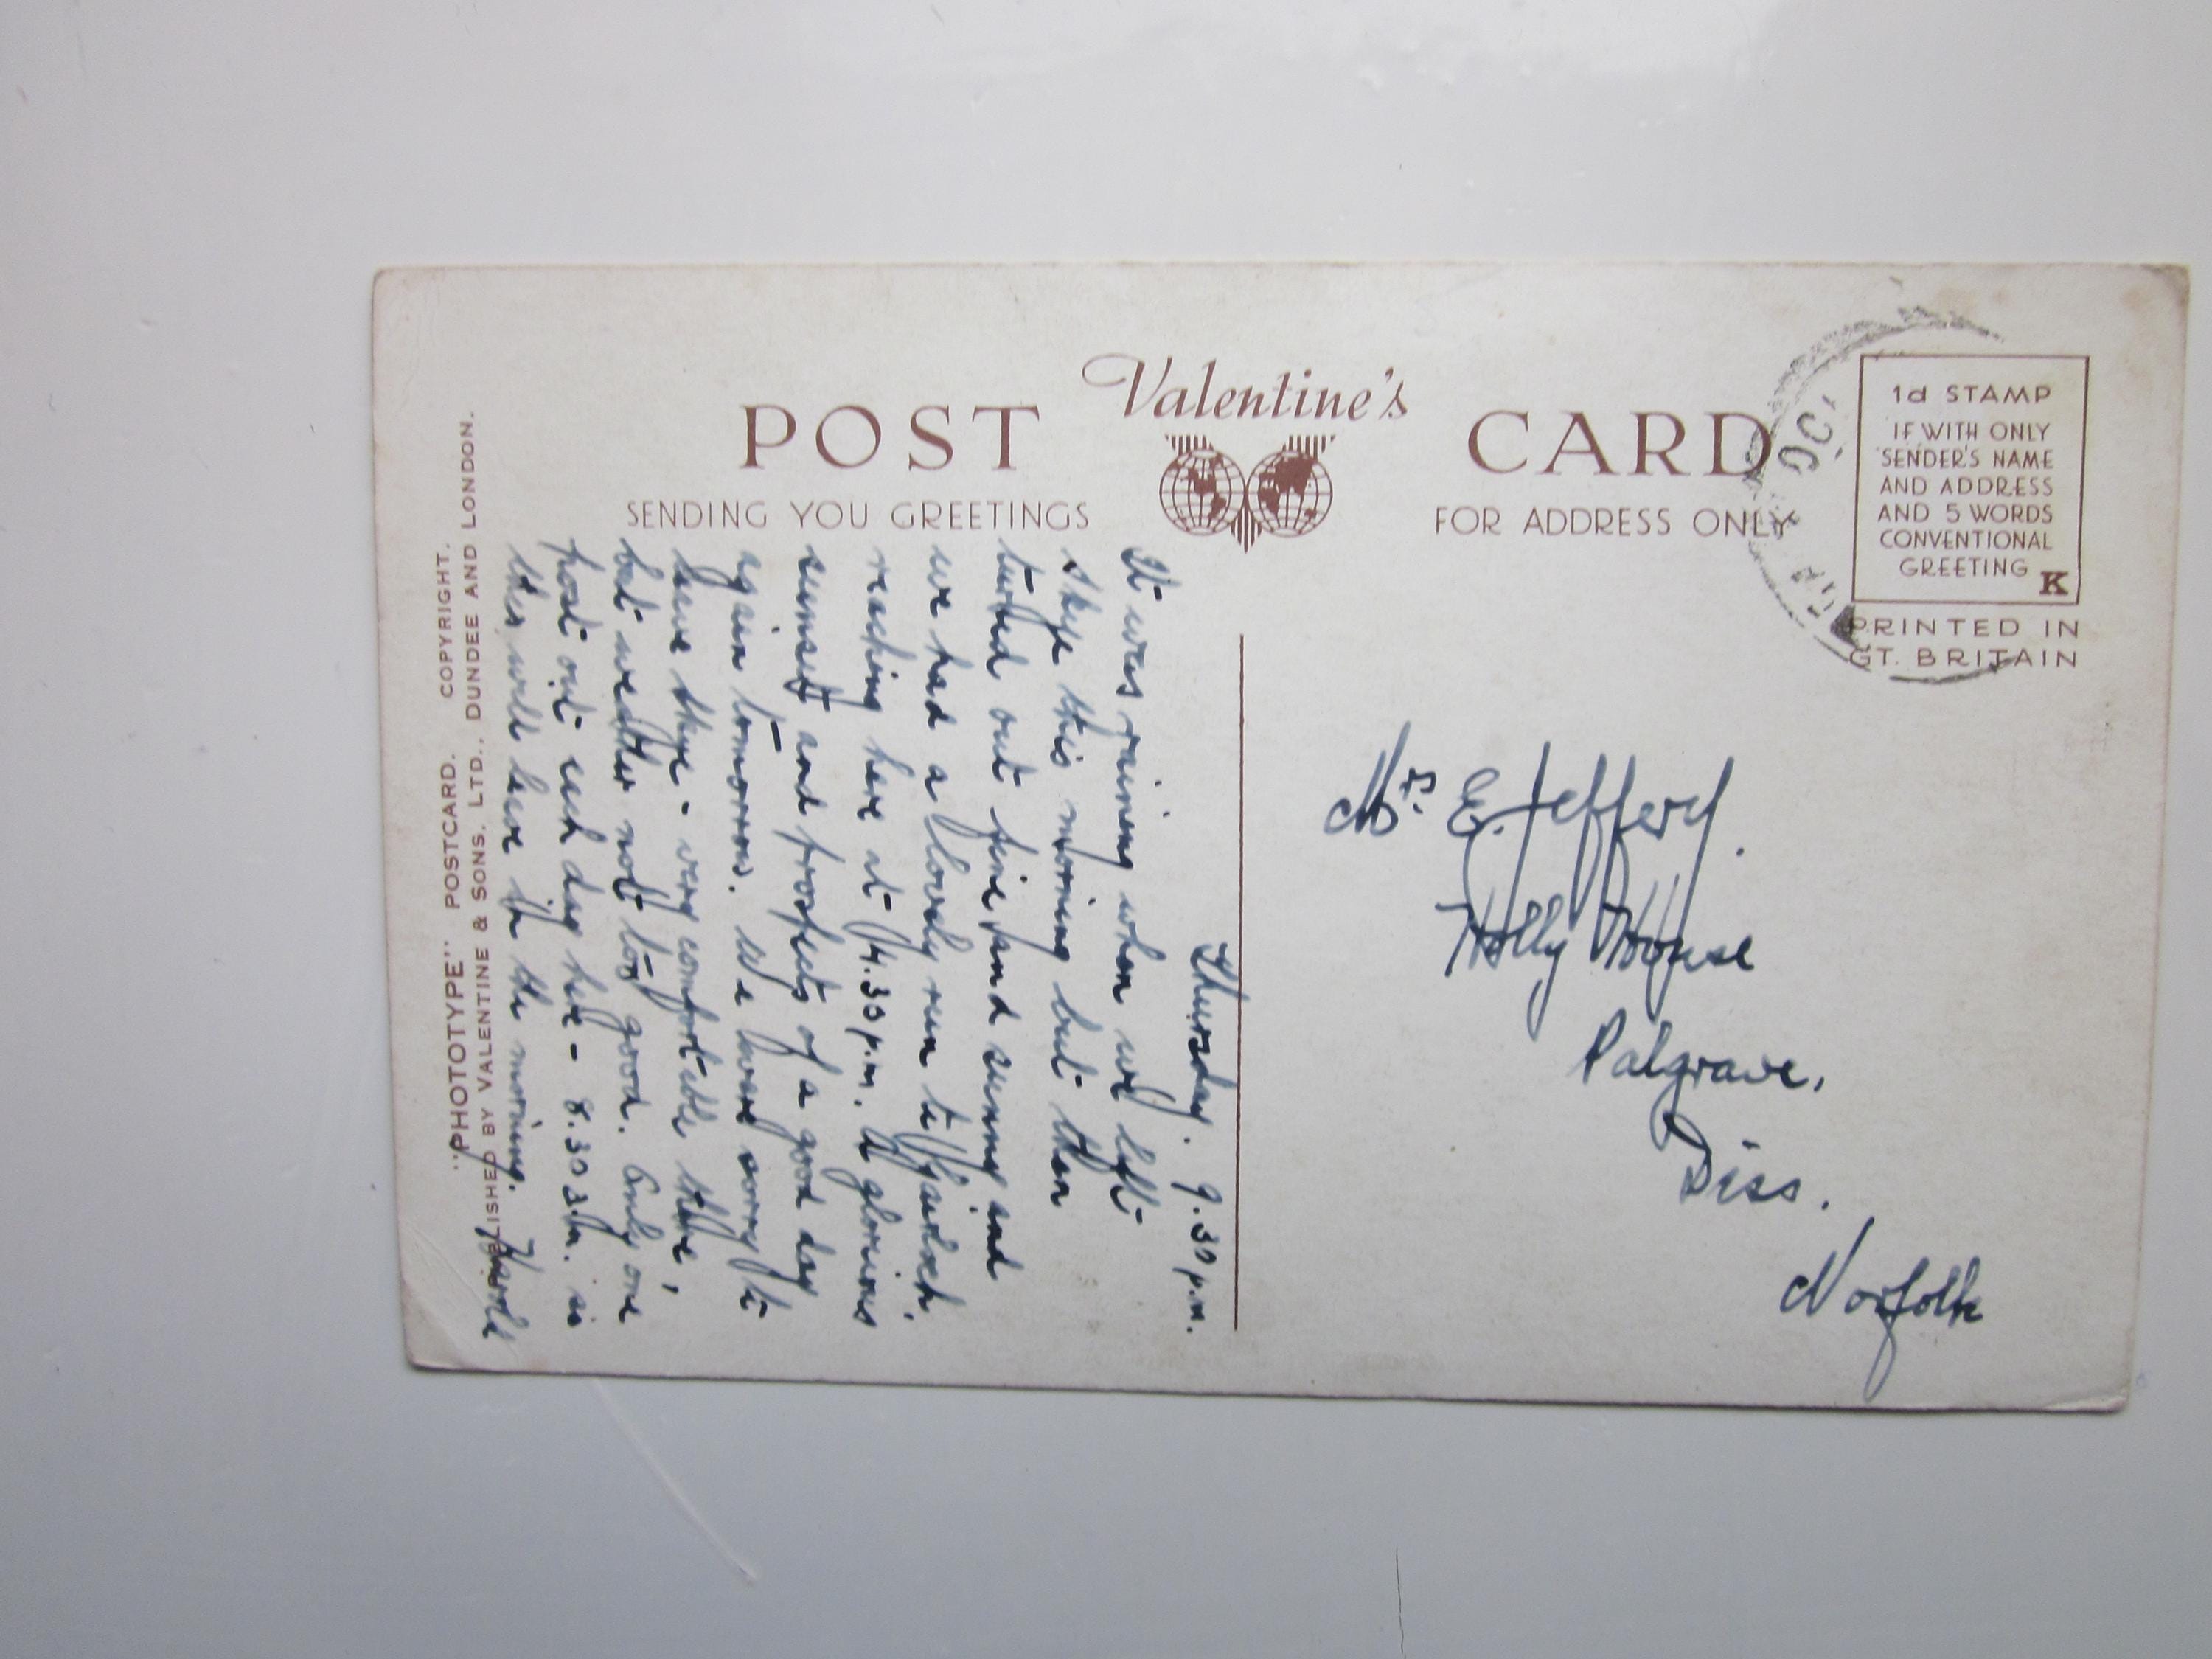 Valentine's
POST CARD
SENDING YOU GREETINGS
FOR ADDRESS ONLY
1d STAMP
IF WITH ONLY
SENDER'S NAME
AND ADDRESS
AND 5 WORDS
CONVENTIONAL
GREETING
K
PRINTED IN
GT. BRITAIN
OCT
"PHOTOTYPE" POSTCARD. COPYRIGHT.
PUBLISHED BY VALENTINE & SONS. LTD., DUNDEE AND LONDON.
Thursday. 9.30 p.m.
It was raining when we left
Skye this morning but then
turned out fine and sunny and
we had a lovely run to Gairloch,
reaching here at 4.30 p.m. A glorious
sunset and prospects of a good day
again tomorrow. We were sorry to
leave Skye - very comfortable there,
but weather not too good. Only one
post out each day here - 8.30 a.m. so
this will leave in the morning. Harold
Mrs. E. Jeffery.
Holly House
Palgrave,
Diss.
Norfolk